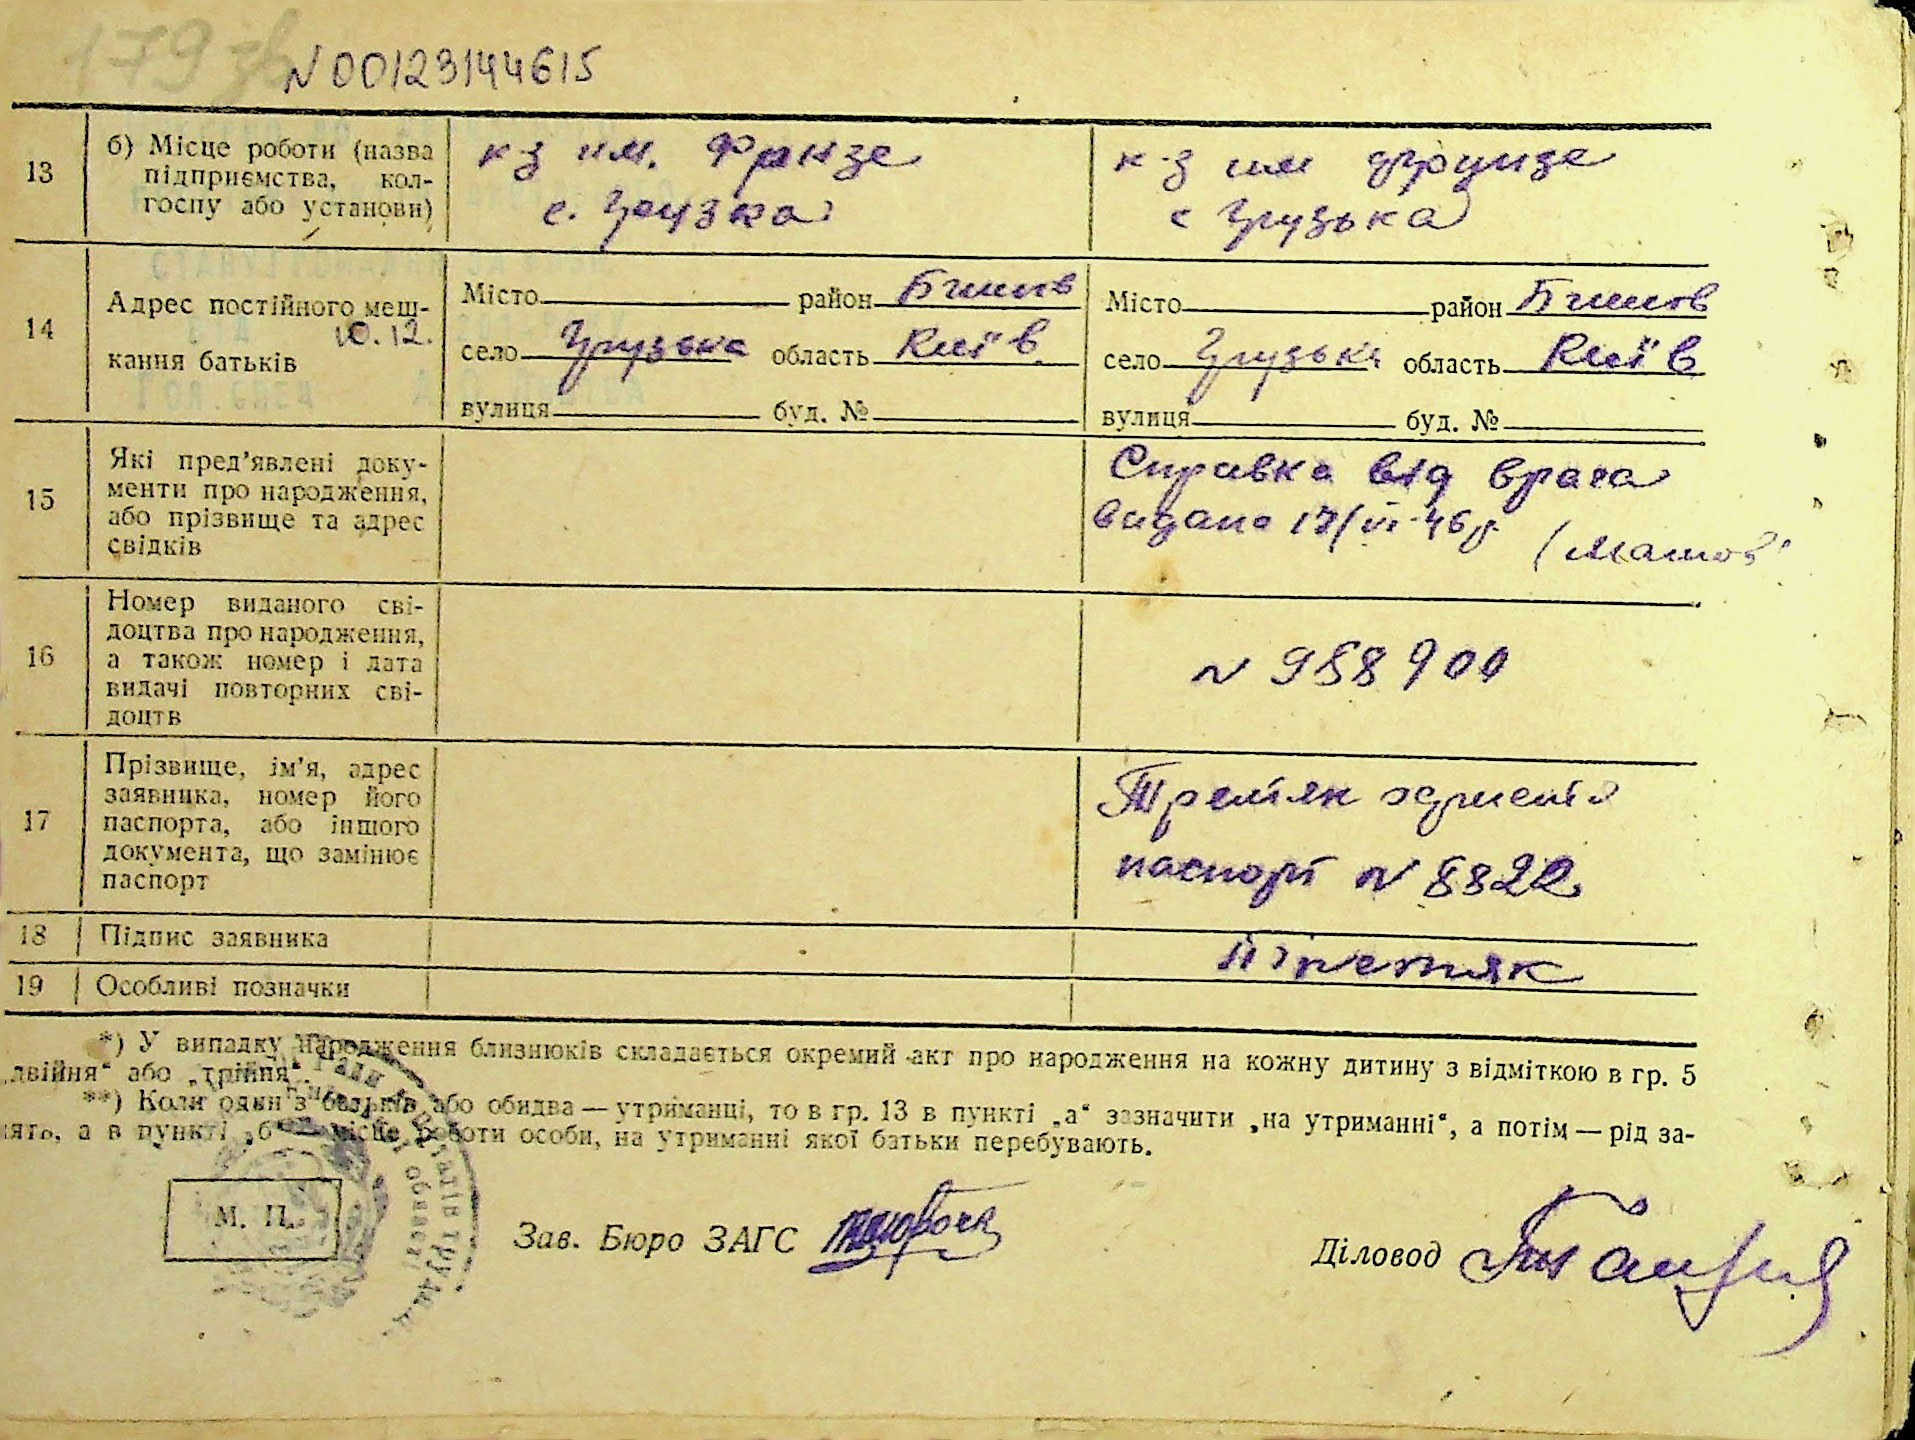 179 зв
N 00123144615
13 б) Місце роботи (назва підприємства, кол-
госпу або установи)
к-з им. Фрунзе
с. Грузка
к-з им Фрунзе
с Грузька
14 Адрес постійного меш-
10.12.
кання батьків
Місто район Бишів
село Грузька область Київ
вулиця буд. №
Місто район Бишов
село Грузька область Київ
вулиця буд. №
15 Які пред'явлені доку-
менти про народження,
або прізвище та адрес
свідків
Справка від врача
видана 17/VI-46р
16 Номер виданого сві-
доцтва про народження,
а також номер і дата
видачі повторних сві-
доцтв
N 988900
17 Прізвище, ім'я, адрес
заявника, номер його
паспорта, або іншого
документа, що замінює
паспорт
Третяк
паспорт N 8822
18 Підпис заявника
Третяк
19 Особливі позначки
*) У випадку народження близнюків складається окремий акт про народження на кожну дитину з відміткою в гр. 5
„двійня“ або „трійня“.
**) Коли один з батьків або обидва — утриманці, то в гр. 13 в пункті „а“ зазначити „на утриманні“, а потім — рід за-
нять, а в пункті „б“ — місце роботи особи, на утриманні якої батьки перебувають.
М. П.
Зав. Бюро ЗАГС
Діловод